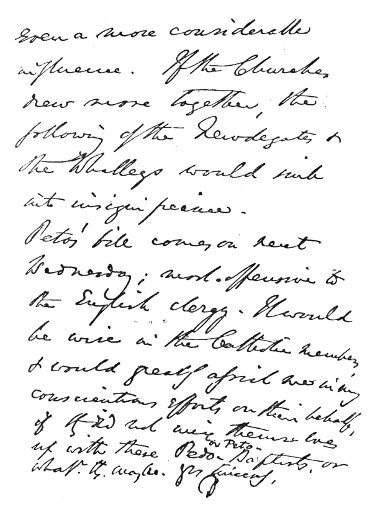 even a more considerable
influence. If the Churches
drew more together, the
following of the Newdegates &
the Whalleys would sink
into insignificance.
Peto's bill comes on next
Wednesday; most offensive to
the English clergy. It would
be wise in the Catholic members,
& would greatly assist me in my
conscientious efforts on their behalf,
if they did not mix themselves
up with these Pedo-Baptists, or
or Peto-
what they may be. Yrs sincerely,
D